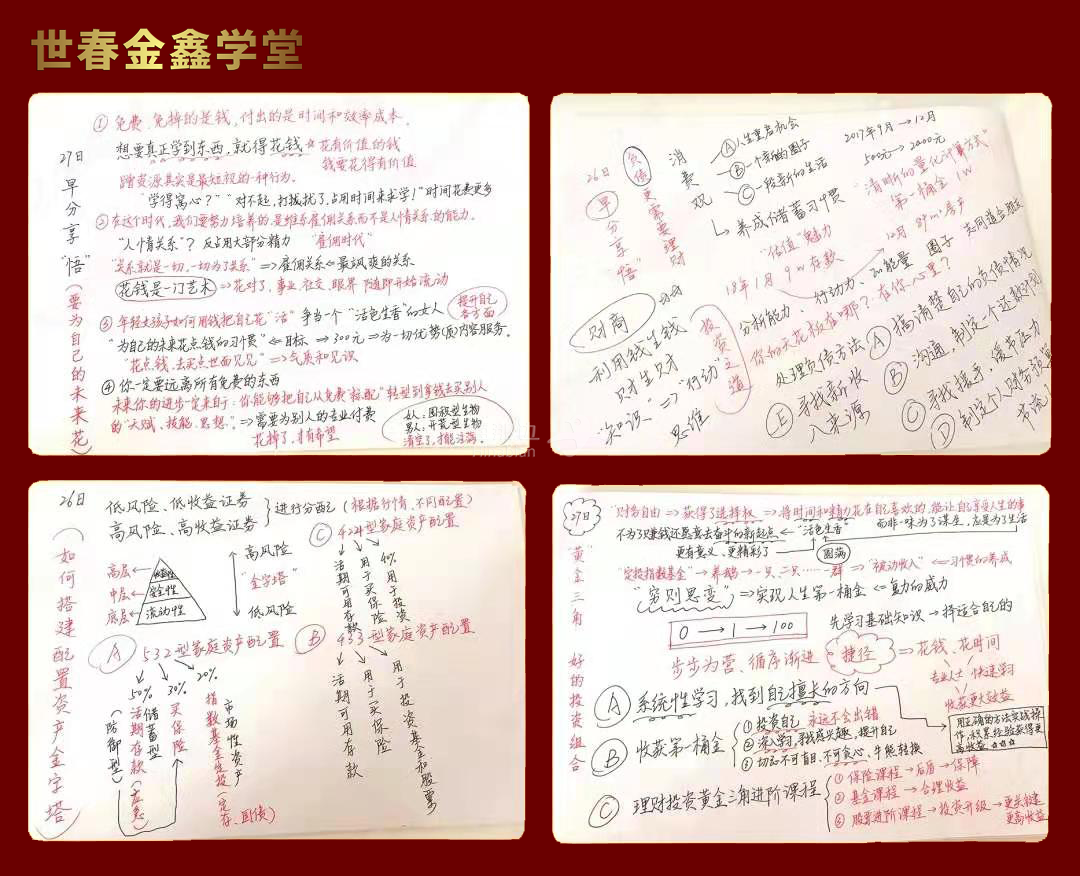 世春金鑫学堂
27日早分享"悟"(要为自己的未来花)
① 免费、免掉的是钱,付出的是时间和效率成本。
想要真正学到东西,就得花钱 ☆ 花有价值的钱
钱要花得有价值
蹭资源其实是最短视的一种行为。
"学得寓心?" "对不起,打拔扰了,占用时间来求学!"时间花费更多
② 在这个时代,我们要努力培养的是维系雇佣关系而不是人情关系的能力。
"人情关系"? 反占用大部分精力 "雇佣时代"
"关系就是一切,一切为了关系" ⇒ 雇佣关系 ⇐ 最飒爽的关系
花钱是一门艺术 ⇒ 花对了,事业、社交、眼界、随即开始流动
③ 年轻女孩子如何用钱把自己花"活" 争当一个"活色生香"的女人
提升自己
"为自己的未来花点钱的习惯" ⇐ 目标 ⇒ 300元 ⇒ 为一切优势(质)内容服务。
"花点钱、去买点世面见见" ⇒ 气质和见识
④ 你一定要远离所有免费的东西
未来你的进步一定来自于:你能够把自己从免费"标配"转型到拿钱去买别人
的"天赋、技能、思想" ⇒ 需要为别人的专业付费
花掉了,才有希望
女人:囤积型生物
男人:开荒型生物
清空了,才能注满。
26日
早分享"悟"
负债更需要理财
消费观
Ⓐ 人生重启机会
Ⓑ 一个新的圈子
Ⓒ 一段新的生活
养成储蓄习惯
2017年9月 → 12月
500元 → 2000元
"清晰的量化计算方式"
第一桶金 1W
"估值"魅力
12月 89m²房产
18年1月 9W存款
分析能力、行动力、正能量 圈子 共同道合朋友
你的天花板在哪?在你心里?
财商
利用钱生钱
只才生只才
"知识" ⇒ "行动"
思维
投资之道
处理负债方法
Ⓐ 搞清楚自己的负债情况
Ⓑ 沟通,制定个还款计划
Ⓒ 寻找援手,缓节压力
Ⓓ 制定个人财务预算
节流
Ⓔ 寻找新收入来源
26日
(如何搭建配置资产金字塔)
低风险、低收益证券
高风险、高收益证券
进行分配 (根据行情、不同配置)
高层 ← 收益性
中层 ← 安全性
底层 ← 流动性
高风险
"金字塔"
低风险
Ⓐ 532型家庭资产配置
50% 储蓄型活期存款(应急)(防御型)
30% 买保险
20% 市场性资产
指数基金定投(定存、国债)
Ⓒ 424型家庭资产配置
活期可用存款
用于买保险
40% 用于投资
Ⓑ 433型家庭资产配置
活期可用存款
用于买保险
用于投资基金和股票
27日
"黄金三角 好的投资组合
"财务自由 ⇒ 获得了选择权 ⇒ 将时间和精力花在自己喜欢的,能让自己享受人生的事
而非一味为了谋生,应是为了生活
不为了赚钱还愿意去奋斗的新起点 ← "活色生香"
更有意义、更精彩了
圆满
"定投指数基金" → 养鹅 → 一只、二只……一群 ⇒ "被动收入" ⇐ 习惯的养成
"穷则思变" ⇒ 实现人生第一桶金 ⇐ 复利的威力
0 → 1 → 100
先学习基础知识 → 择适合自己的
步步为营、循序渐进
捷径 ⇒ 花钱、花时间
专业人士 快速学习
收获更大效益
Ⓐ 系统性学习,找到自己擅长的方向
用正确的方法实战操作,积累经验获得更高收益 ☆☆☆
Ⓑ 收获第一桶金
① 投资自己 永远不会出错
② 深入学习,寻找成兴趣,提升自己
③ 切忌不可盲目、不可贪心,牛熊转换
Ⓒ 理财投资黄金三角进阶课程
① 保险课程 → 后盾 → 保障
② 基金课程 → 合理收益
③ 股票进阶课程 → 投资升级 → 更关键 更高收益